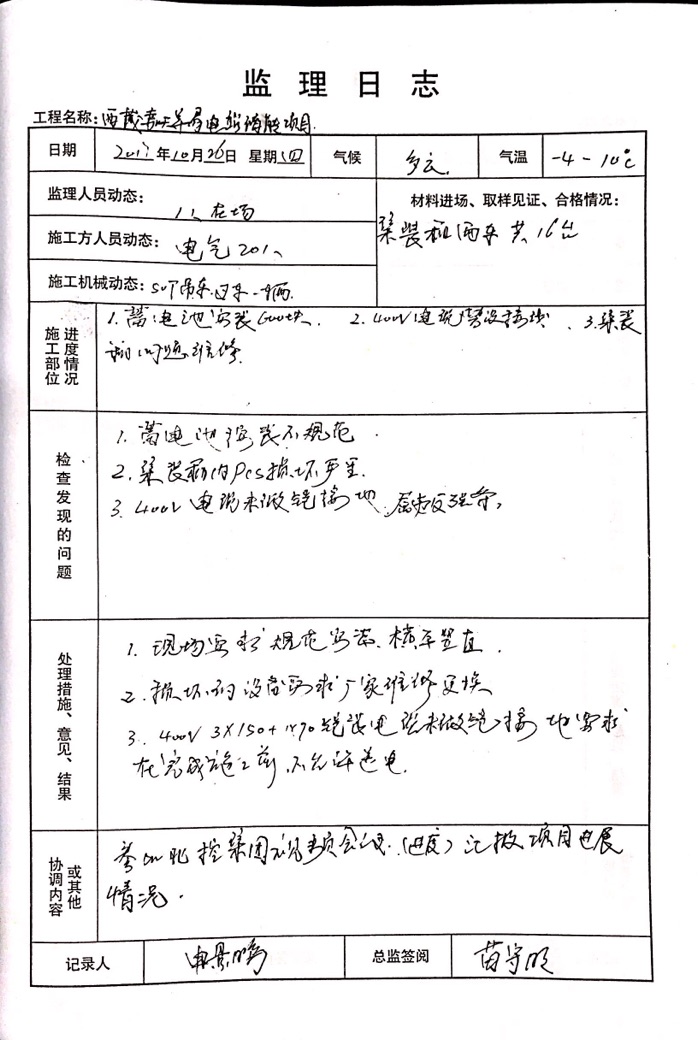 监理日志
工程名称：西藏
日期 2017年10月26日 星期四 气候 多云 气温 -4-10℃
监理人员动态： 1人在场
材料进场、取样见证、合格情况：
集装箱 共16台
施工方人员动态： 电气20人
施工机械动态： 50T吊车 一辆
施工部位 进度情况
1. 蓄电池安装600块. 2. 400V电缆敷设接线. 3. 集装
箱问题维修
检查发现的问题
1. 蓄电池安装不规范.
2. 集装箱内PCS损坏严重.
3. 400V电缆未做铠接地
处理措施、意见、结果
1. 现场要求规范安装 横平竖直.
2. 损坏的设备要求厂家维修更换
3. 400V 3×150+1×70铠装电缆未做铠接地 要求
在完成施工前,不允许送电.
协调内容 或其他
参加北控集团视频会议(进度)汇报项目进展
情况.
记录人 总监签阅 苗守明